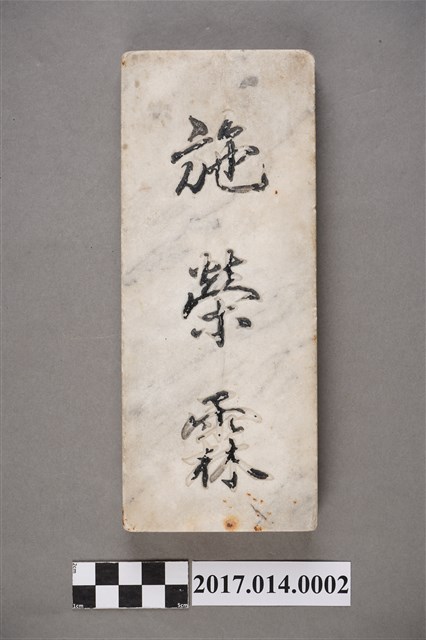 施榮霖
2cm
1cm
5cm
2017.014.0002